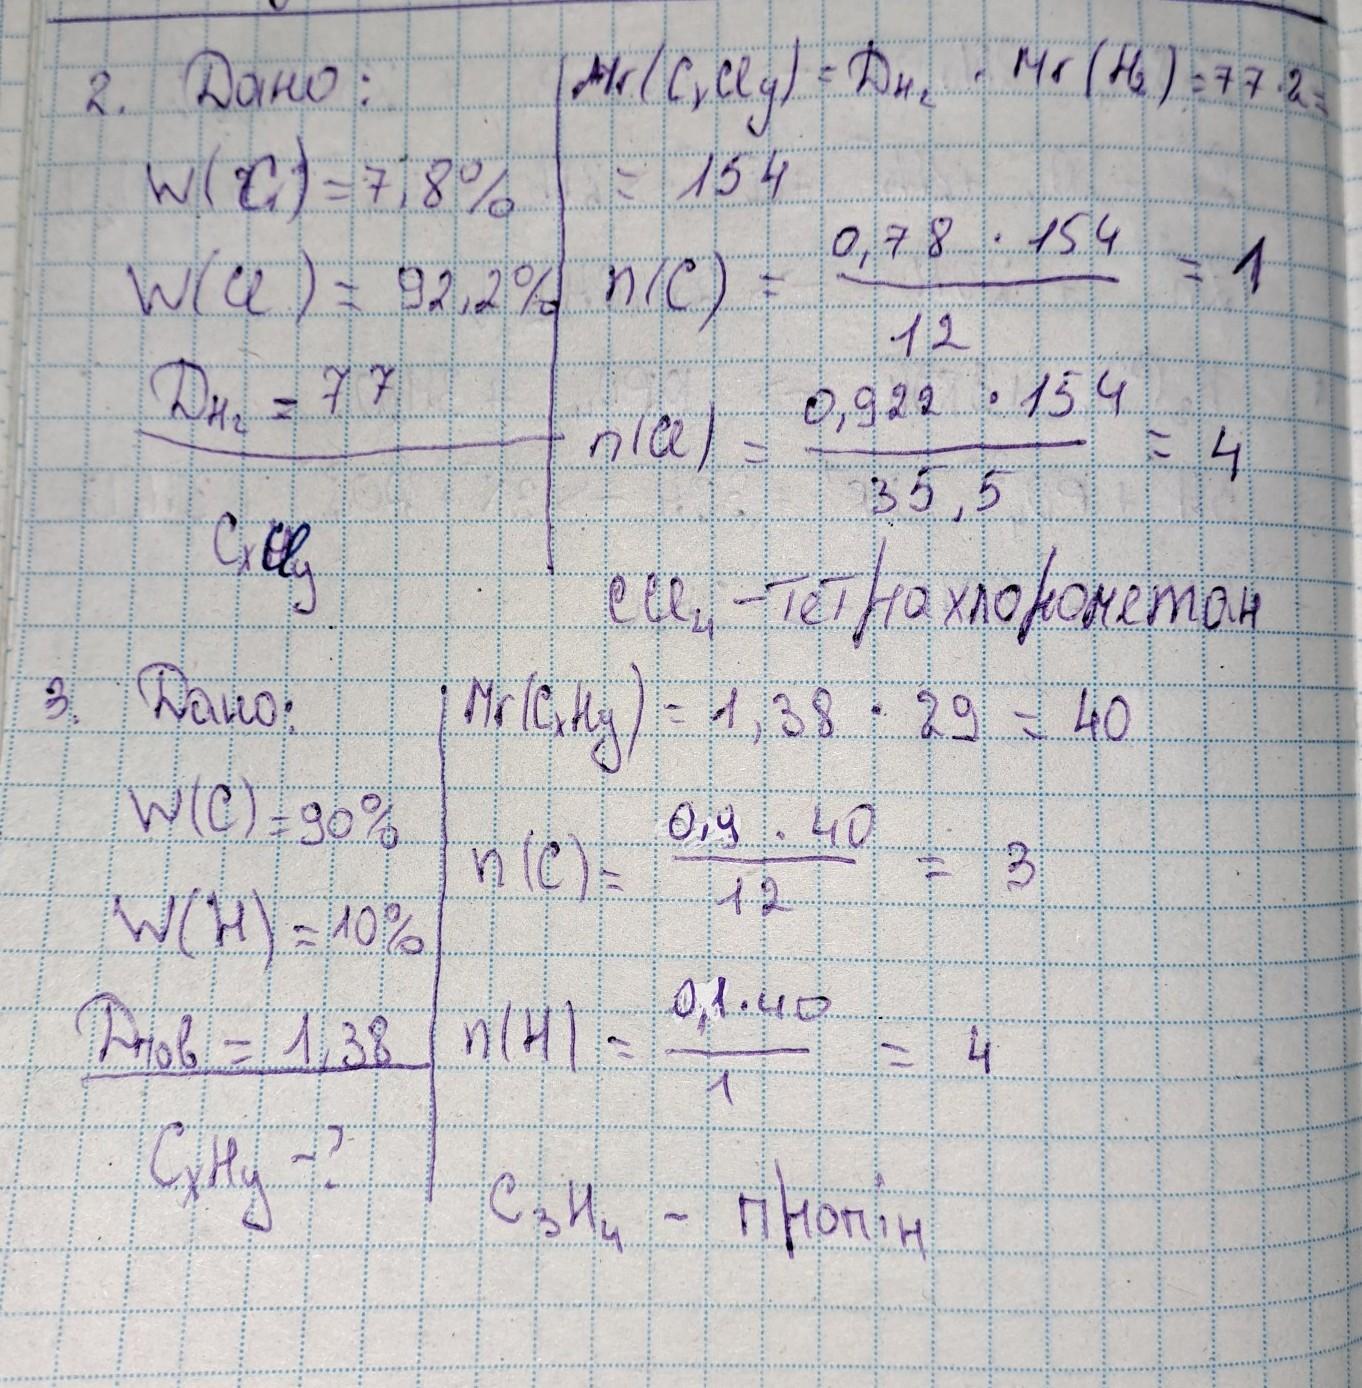 2. Дано:
W(C) = 7,8%
W(Cl) = 92,2%
Dн₂ = 77
CxCly
Mr(CxCly) = Dн₂ · Mr(H₂) = 77·2=
= 154
n(C) = 0,78 · 154 / 12 = 1
n(Cl) = 0,922 · 154 / 35,5 = 4
CCl₄ – тетрахлорометан
3. Дано:
W(C) = 90%
W(H) = 10%
Dпов = 1,38
CxHy – ?
Mr(CxHy) = 1,38 · 29 = 40
n(C) = 0,9 · 40 / 12 = 3
n(H) = 0,1·40 / 1 = 4
C₃H₄ – пропін